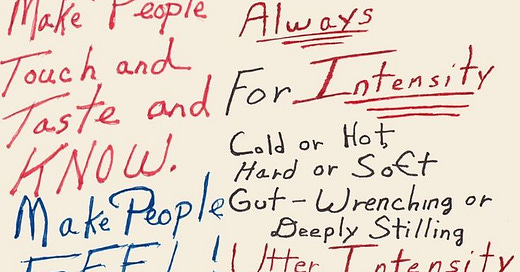 Make People
Touch and
Taste and
KNOW.
Make People
FEEL!
Always
For Intensity
Cold or Hot,
Hard or Soft
Gut - Wrenching or
Deeply Stilling
Utter Intensity